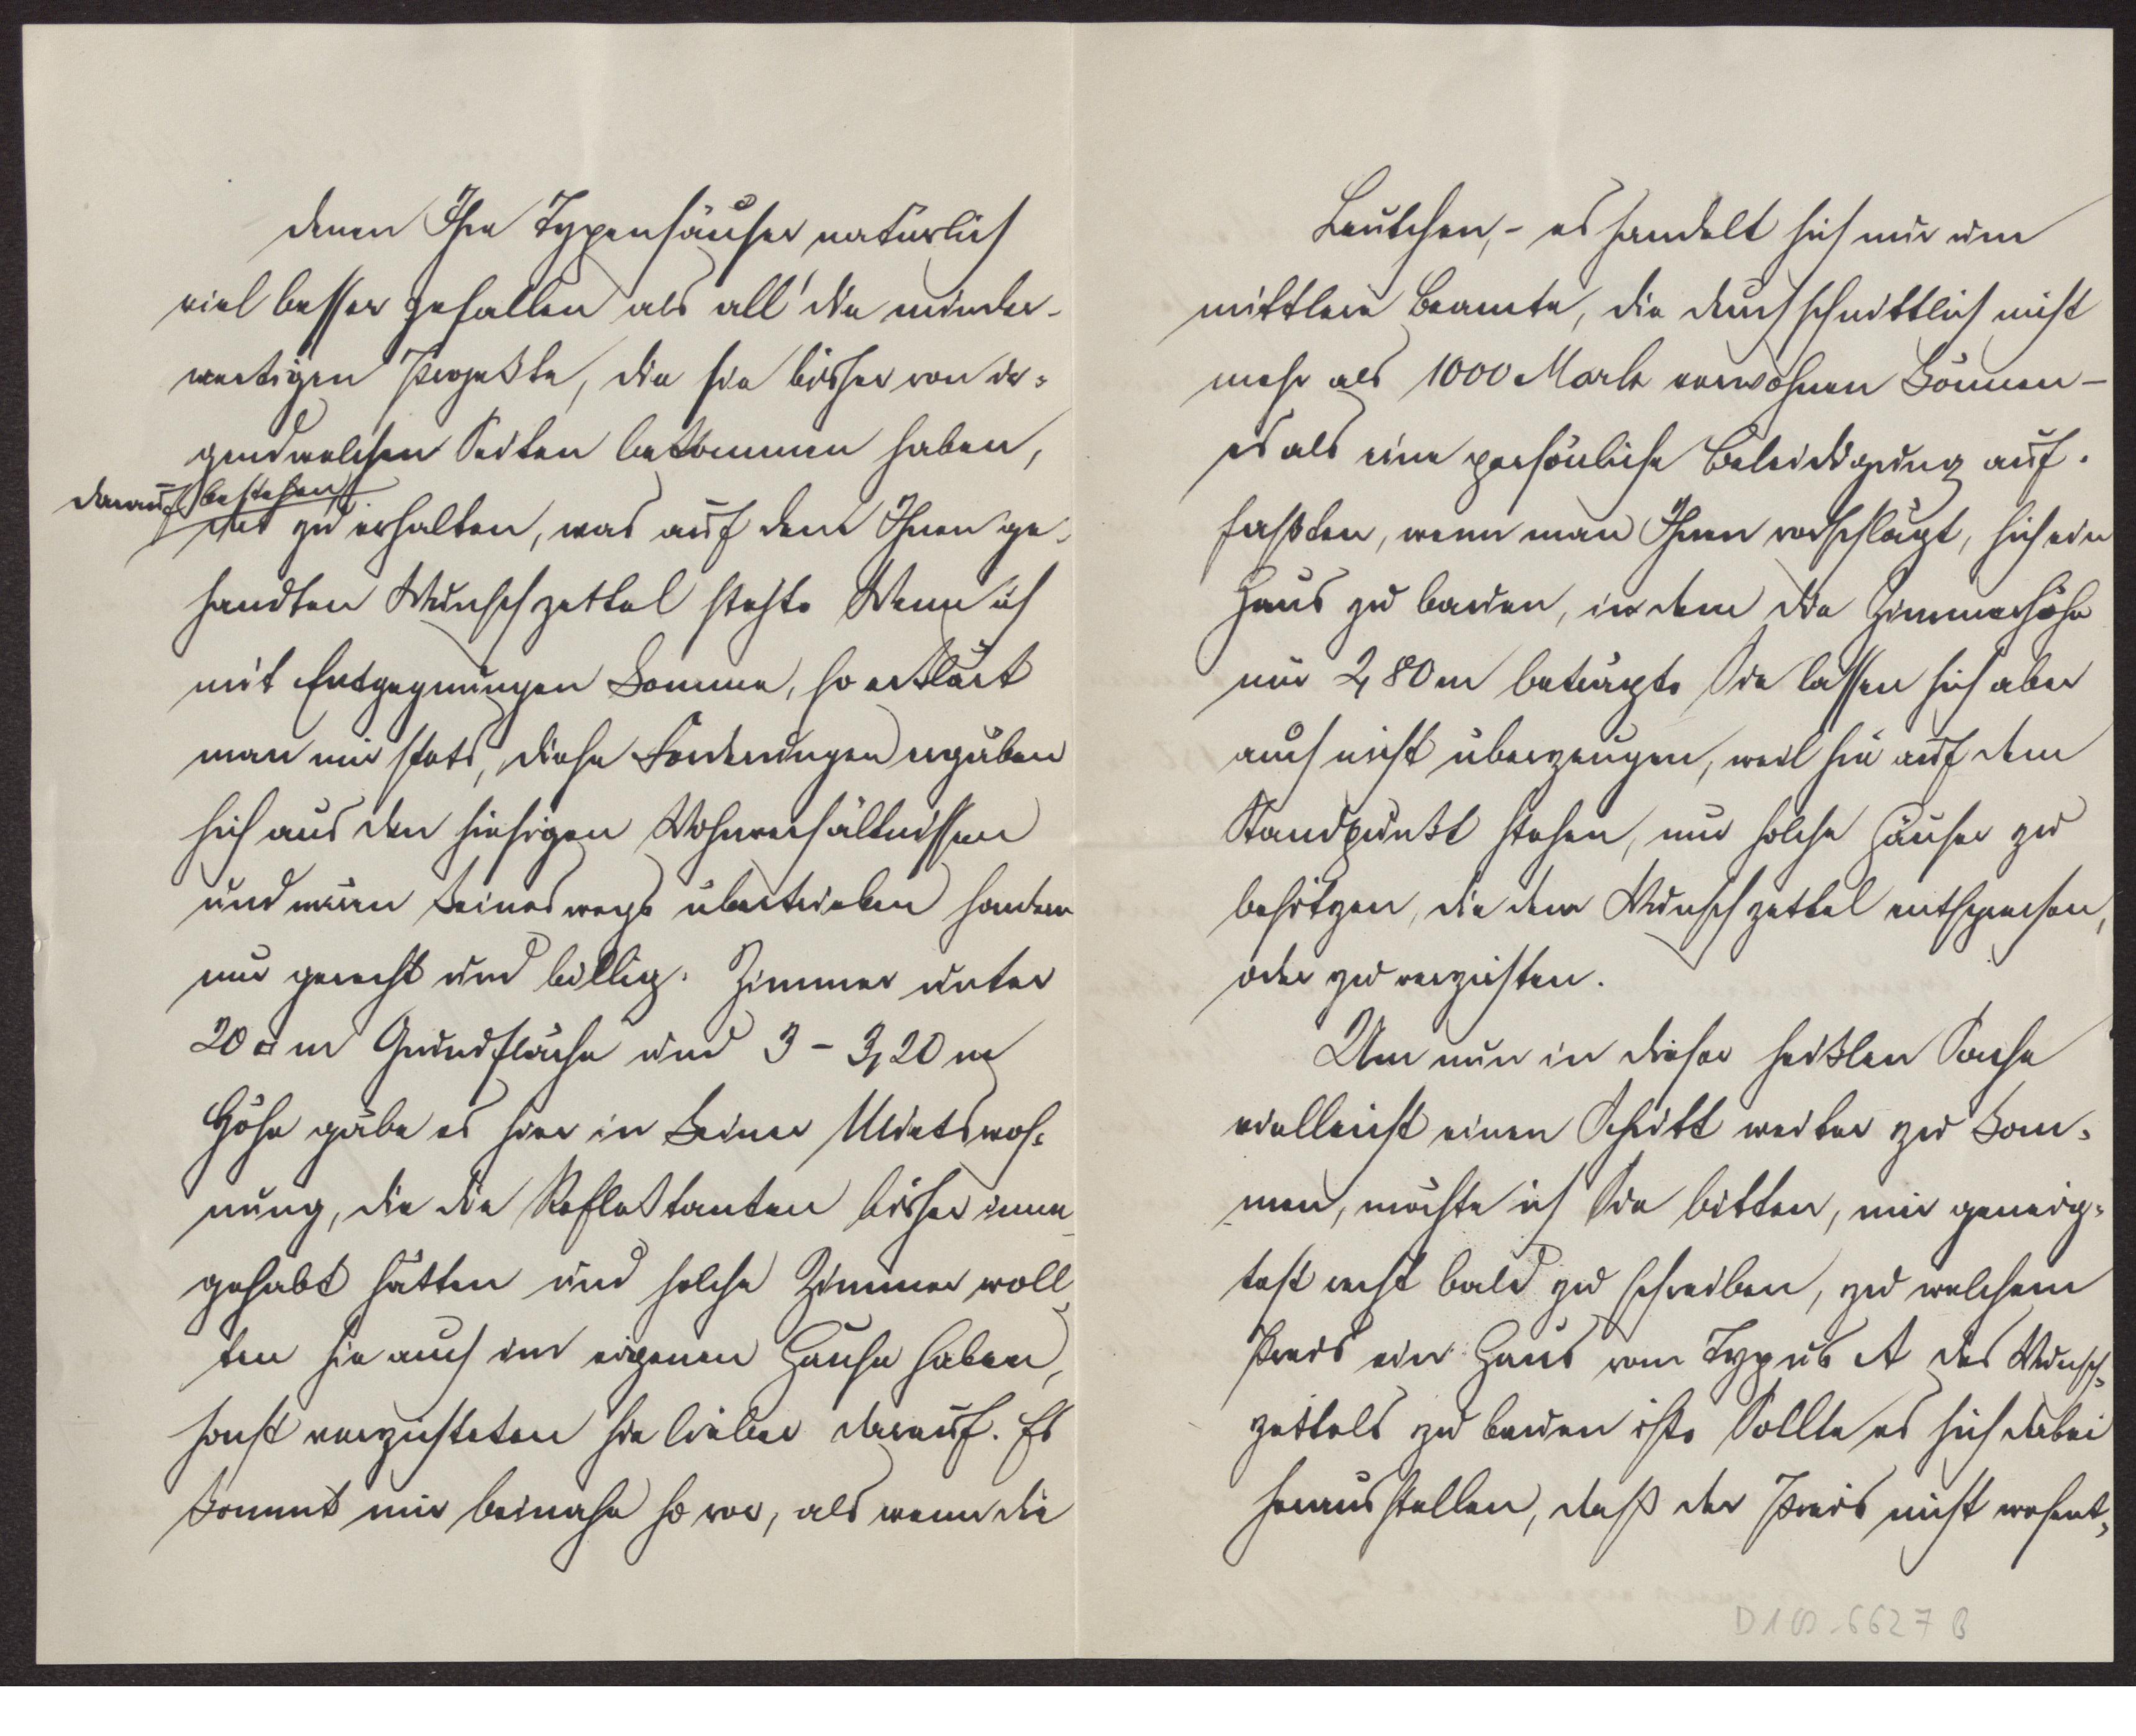 denen Ihre Typenhäuser natürlich
viel besser gefallen als all' die minder-
wertigen Projekte, die sie bisher von ir-
gendwelchen Seiten bekommen haben,
darauf bestehen
das zu erhalten, was auf dem Ihnen ge-
sandten Wunschzettel steht. Wenn ich
mit Entgegnungen komme, so erklärt
man mir stets, diese Forderungen ergäben
sich aus den hiesigen Wohnverhältnissen
und wären keineswegs übertrieben sondern
nur gerecht und billig. Zimmer unter
20 □ m Grundfläche und 3 - 3,20 m
Höhe gäbe es hier in keiner Mietswoh-
nung, die die Reflektanten bisher inne-
gehabt hätten und solche Zimmer woll-
ten sie auch im eigenen Hause haben,
sonst verzichteten sie lieber darauf. Es
kommt mir beinahe so vor, als wenn die
Leutchen, - es handelt sich nur um
mittlere Beamte, die durchschnittlich nicht
mehr als 1000 Mark verwohnen können -
es als eine persönliche Beleidigung auf-
faßten, wenn man Ihnen vorschlägt, sich ein
Haus zu bauen, in dem die Zimmerhöhe
nur 2,80 m beträgt. Sie lassen sich aber
auch nicht überzeugen, weil sie auf dem
Standpunkt stehen, nur solche Häuser zu
besitzen, die dem Wunschzettel entsprechen,
oder zu verzichten.
Um nun in dieser heiklen Sache
vielleicht einen Schritt weiter zu kom-
men, möchte ich Sie bitten, mir geneig-
test recht bald zu schreiben, zu welchem
Preis ein Haus vom Typus A des Wunsch-
zettels zu bauen ist. Sollte es sich dabei
herausstellen, daß der Preis nicht wesent-